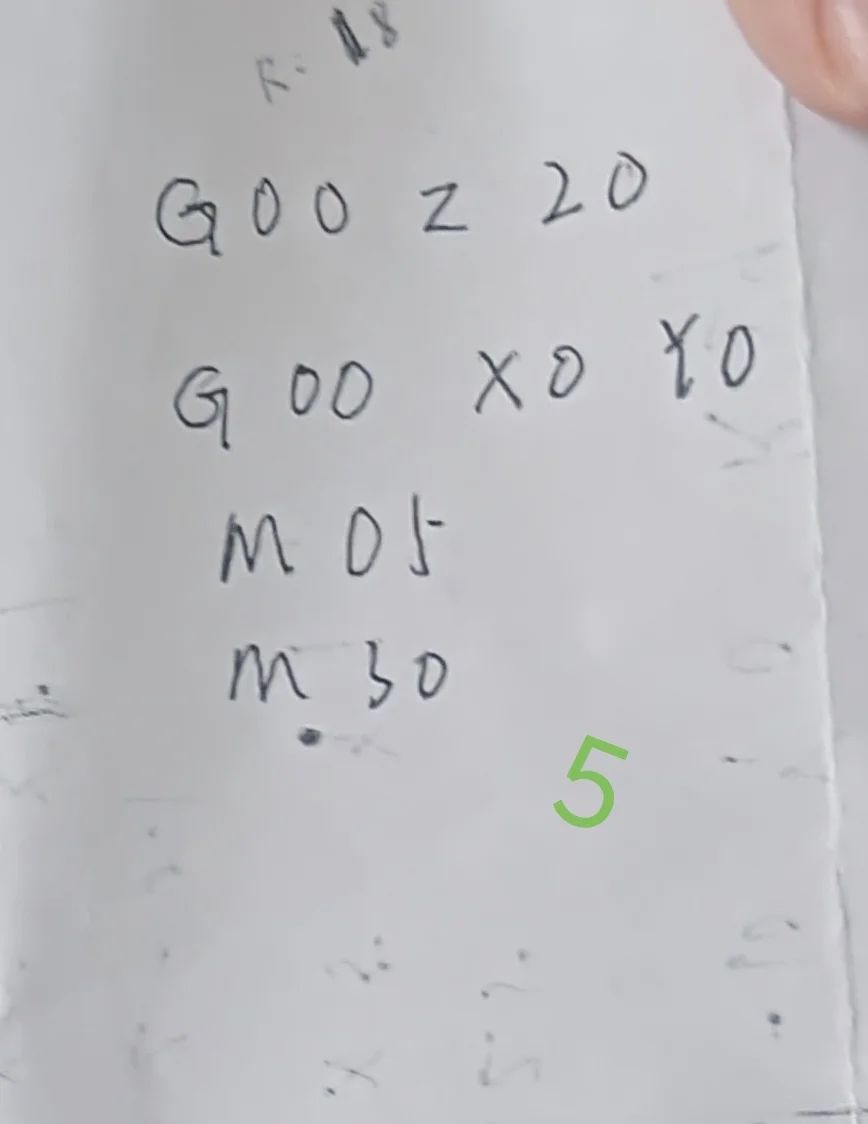 G00 Z 20
G 00 X0 Y0
M 05
M 30
5